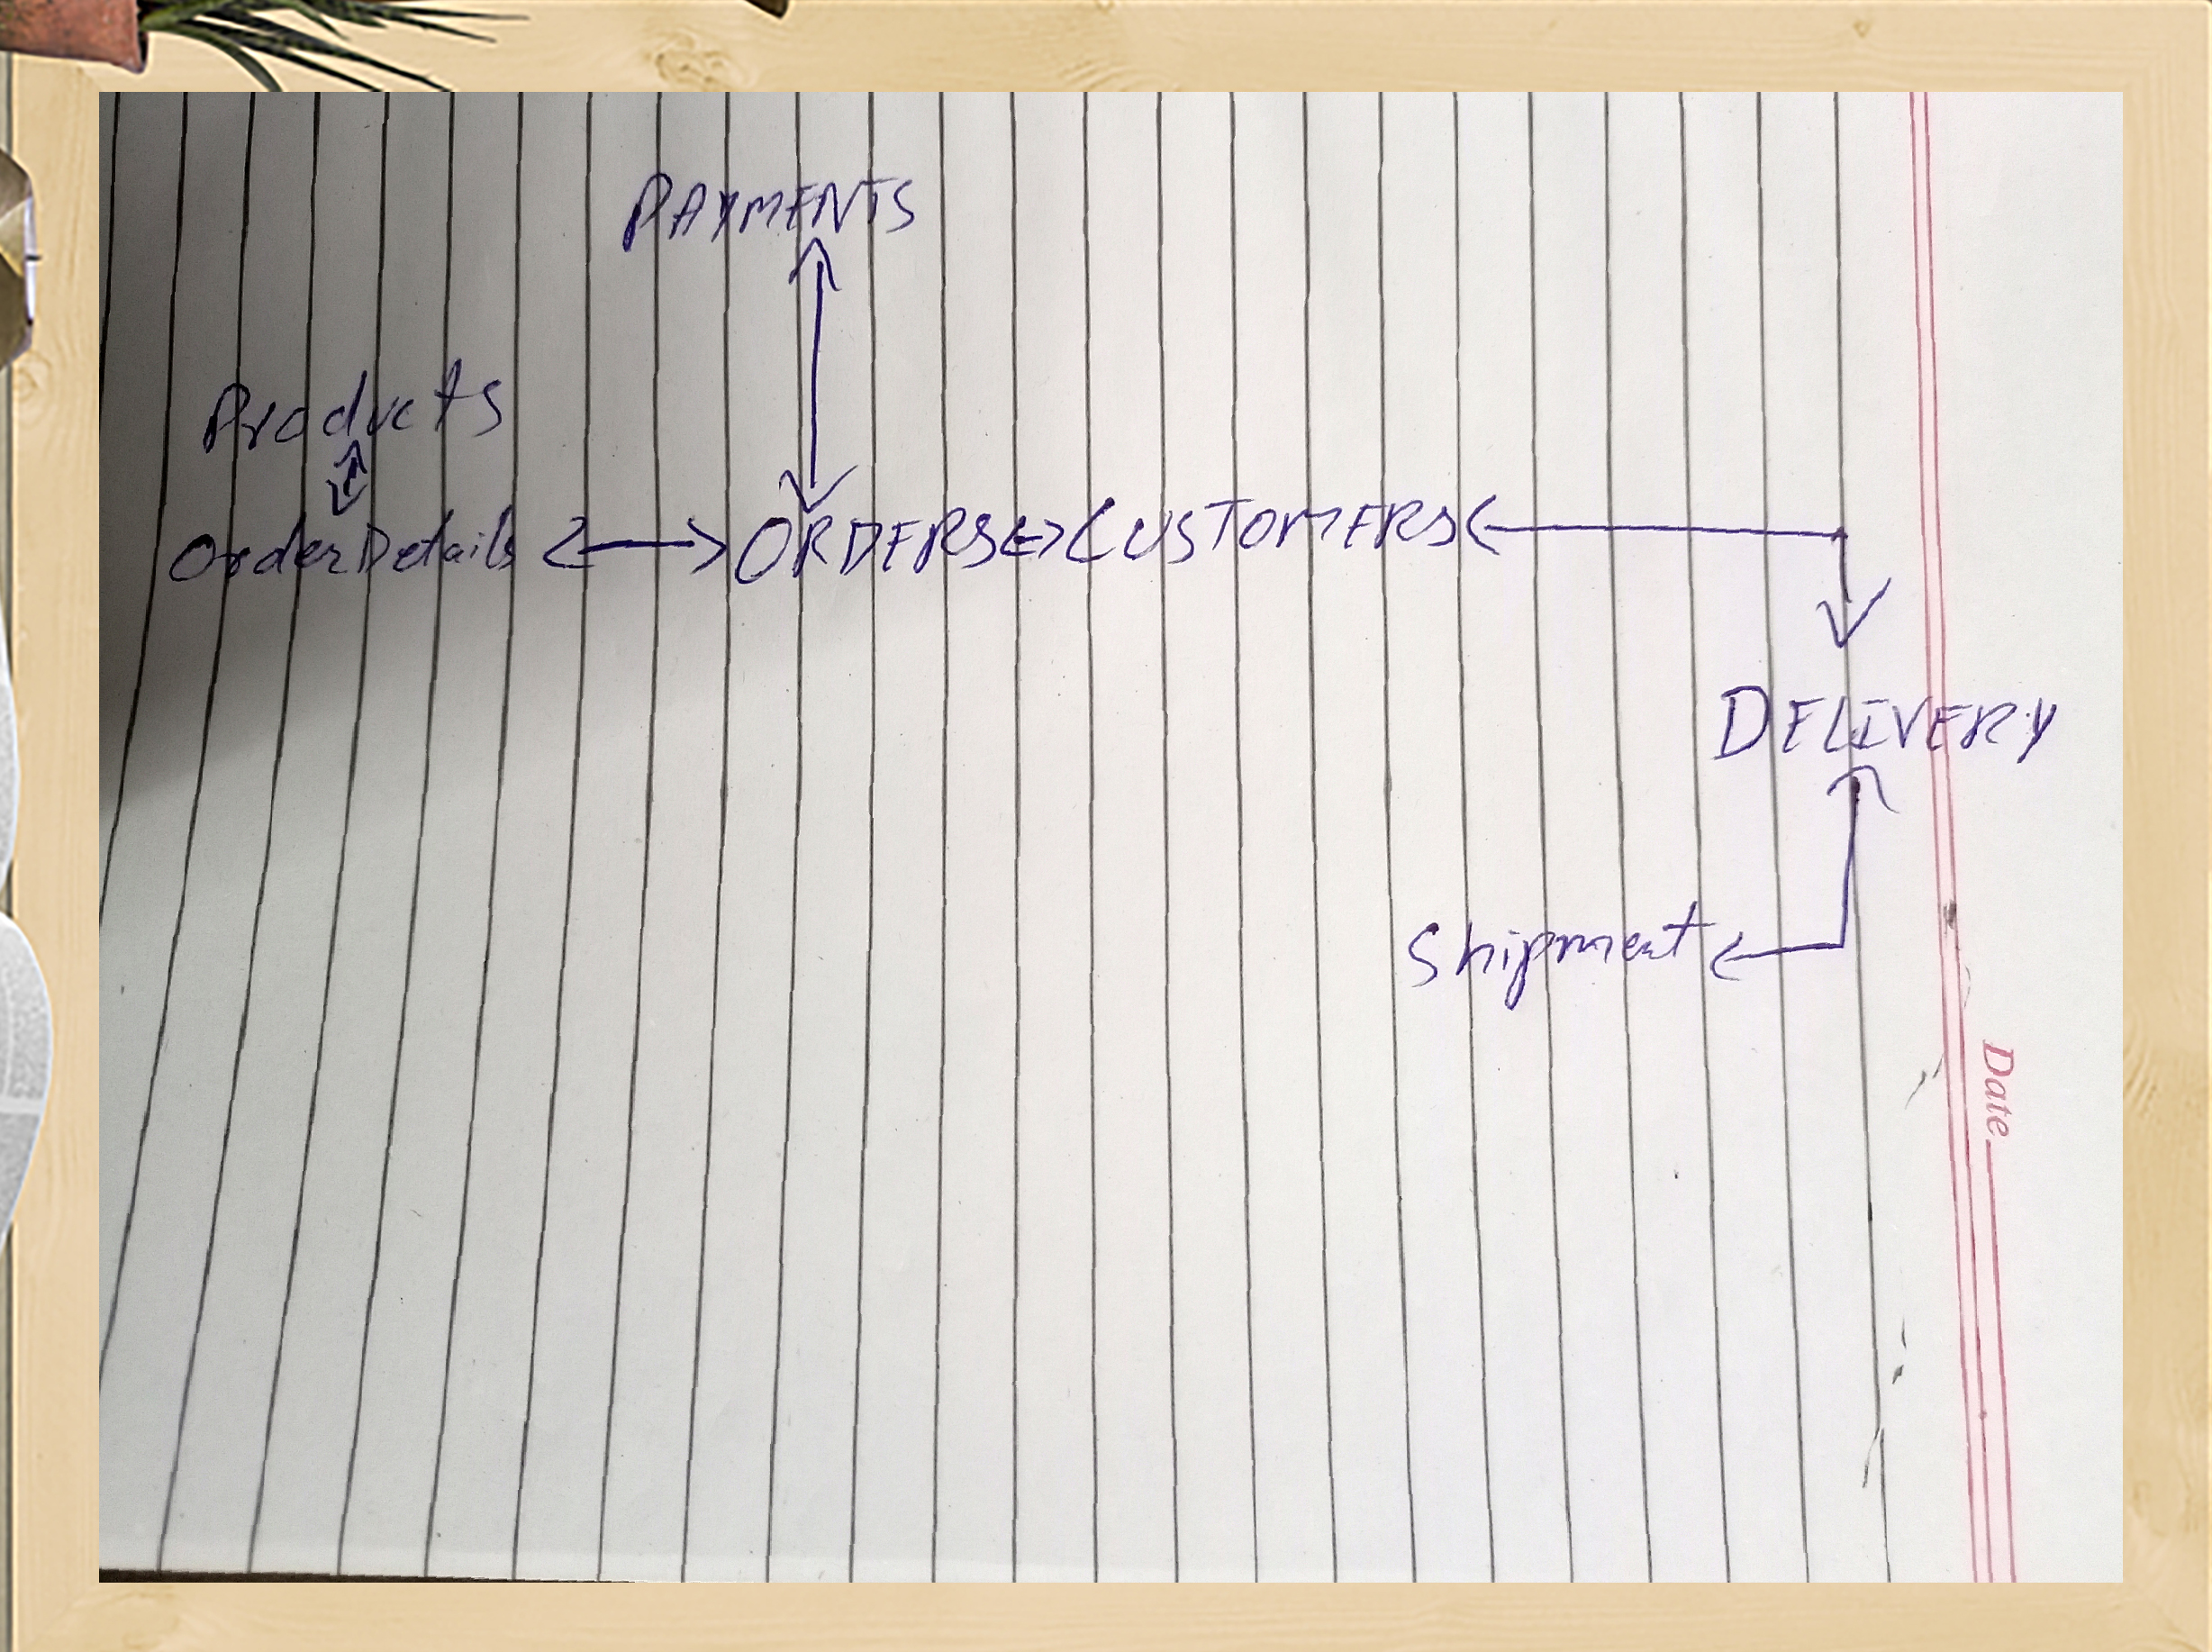 PAYMENTS
Products
OrderDetails <-> ORDERS <-> CUSTOMERS <
DELIVERY
Shipment
Date